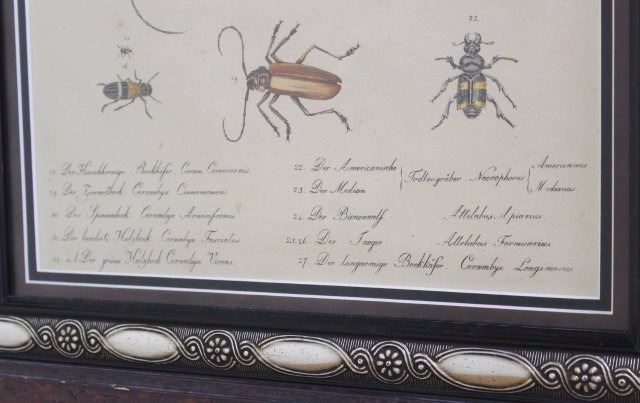 22
29
28. Der Hirschhornige Bockkäfer. Ceram Cervicornis.
29. Der Zimmelbock. Cerambyx Cinnamoneus.
30. Der Spinnenbock. Cerambyx Araneiformis
31. Der bandirte Holzbock. Cerambyx Fasciatus
a.b. Der grüne Holzbock Cerambyx Virens.
22. Der Americanische
23. Der Median
Todtengräber. Necrophorus
Americanus
Medianus.
24. Der Bienenwolf Attelabus Apiarius.
25.26. Der Jaeger Attelabus Formicarius
27. Der langarmige Bockkäfer. Cerambyx Longemanus